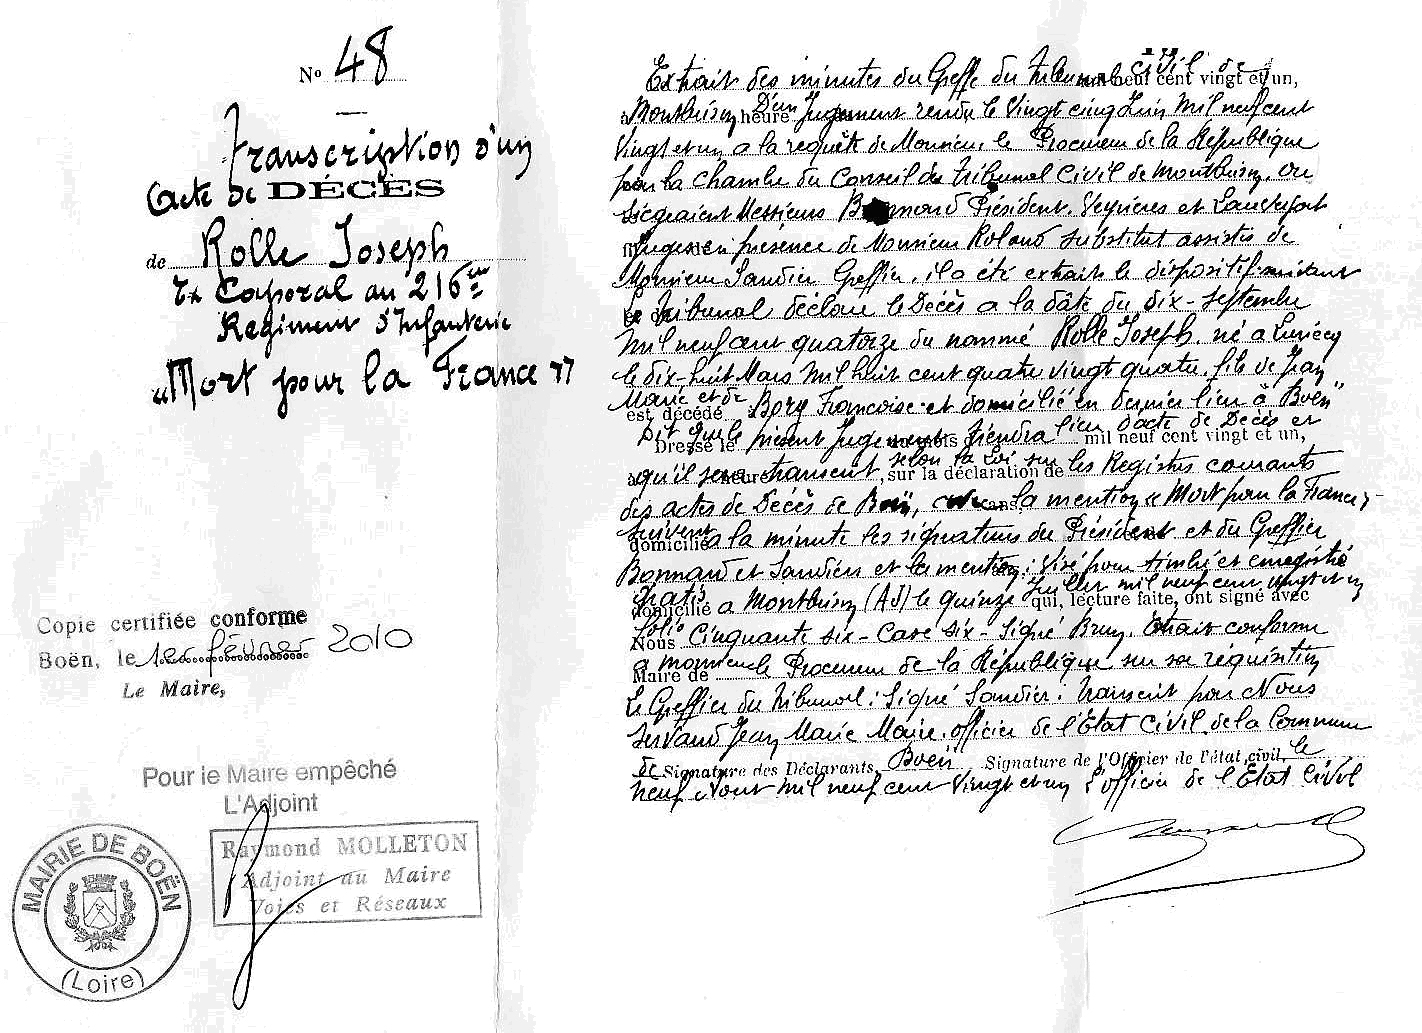 N° 48
transcription d'un
Acte de DÉCÈS
de Rolle Joseph
Ex Caporal au 216eme
Regiment d'Infanterie
"Mort pour la France"
Copie certifiée conforme
Boën, le 1er février 2010
Le Maire,
Pour le Maire empêché
L'Adjoint
Raymond MOLLETON
Adjoint au Maire
Voies et Réseaux
MAIRIE DE BOËN
(Loire)
Extrait des minutes du Greffe du Tribunal civil de mil neuf cent vingt et un,
à Montbrison heure D'un Jugement rendu le Vingt cinq Juin Mil neuf cent
Vingt et un a la requête de Monsieur le Procureur de la République
par la Chambre du Conseil du Tribunal Civil de Montbrison, ou
siégeaient Messieurs Bonnand Président, Veyrieres et
Juges en présence de Monsieur Roland Substitut assistés de
Monsieur Sandier Greffier, il a été extrait le dispositif suivant
Le Tribunal déclare le Décès a la date du dix-septembre
Mil neuf cent quatorze du nommé Rolle Joseph, né a Luriecq
le dix-huit Mars Mil huit cent quatre vingt quatre, fils de Jean
Marie et de
est décédé Bory Francoise et domicilié en dernier lieu à "Boën"
Dit que le présent Jugement tiendra lieu d'acte de Décès et
Dressé le mois mil neuf cent vingt et un,
qu'il sera transcrit selon la Loi sur les Registres courants
heure , sur la déclaration de
des actes de Décès de Boën, avec ans, la mention "Mort pour la France"
Suivent a la minute les signatures du Président et du Greffier
domicilié
Bonnand et Sandier et la mention: Visé pour timbre et enregistré
Gratis a Montbrison (AJ) le quinze Juillet mil neuf cent vingt et un
domicilié qui, lecture faite, ont signé avec
folio Cinquante six - Case six - Signé Bruy. Extrait conforme
Nous
a Monsieur le Procureur de la République sur sa réquisition
Maire de
Le Greffier du Tribunal: Signé Sandier: Transcrit par Nous
Servand Jean Marie Maire, officier de l'Etat Civil de la Commune
de Boën le
Signature des Déclarants, Signature de l'Officier de l'état civil,
neuf Aout mil neuf cent vingt et un L'officier de l'Etat Civil